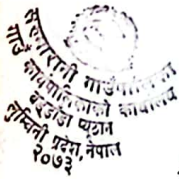 मल्लरानी गाउँपालिका
गाउँ कार्यपालिकाको कार्यालय
प्यूठान
लुम्बिनी प्रदेश, नेपाल
२०७३